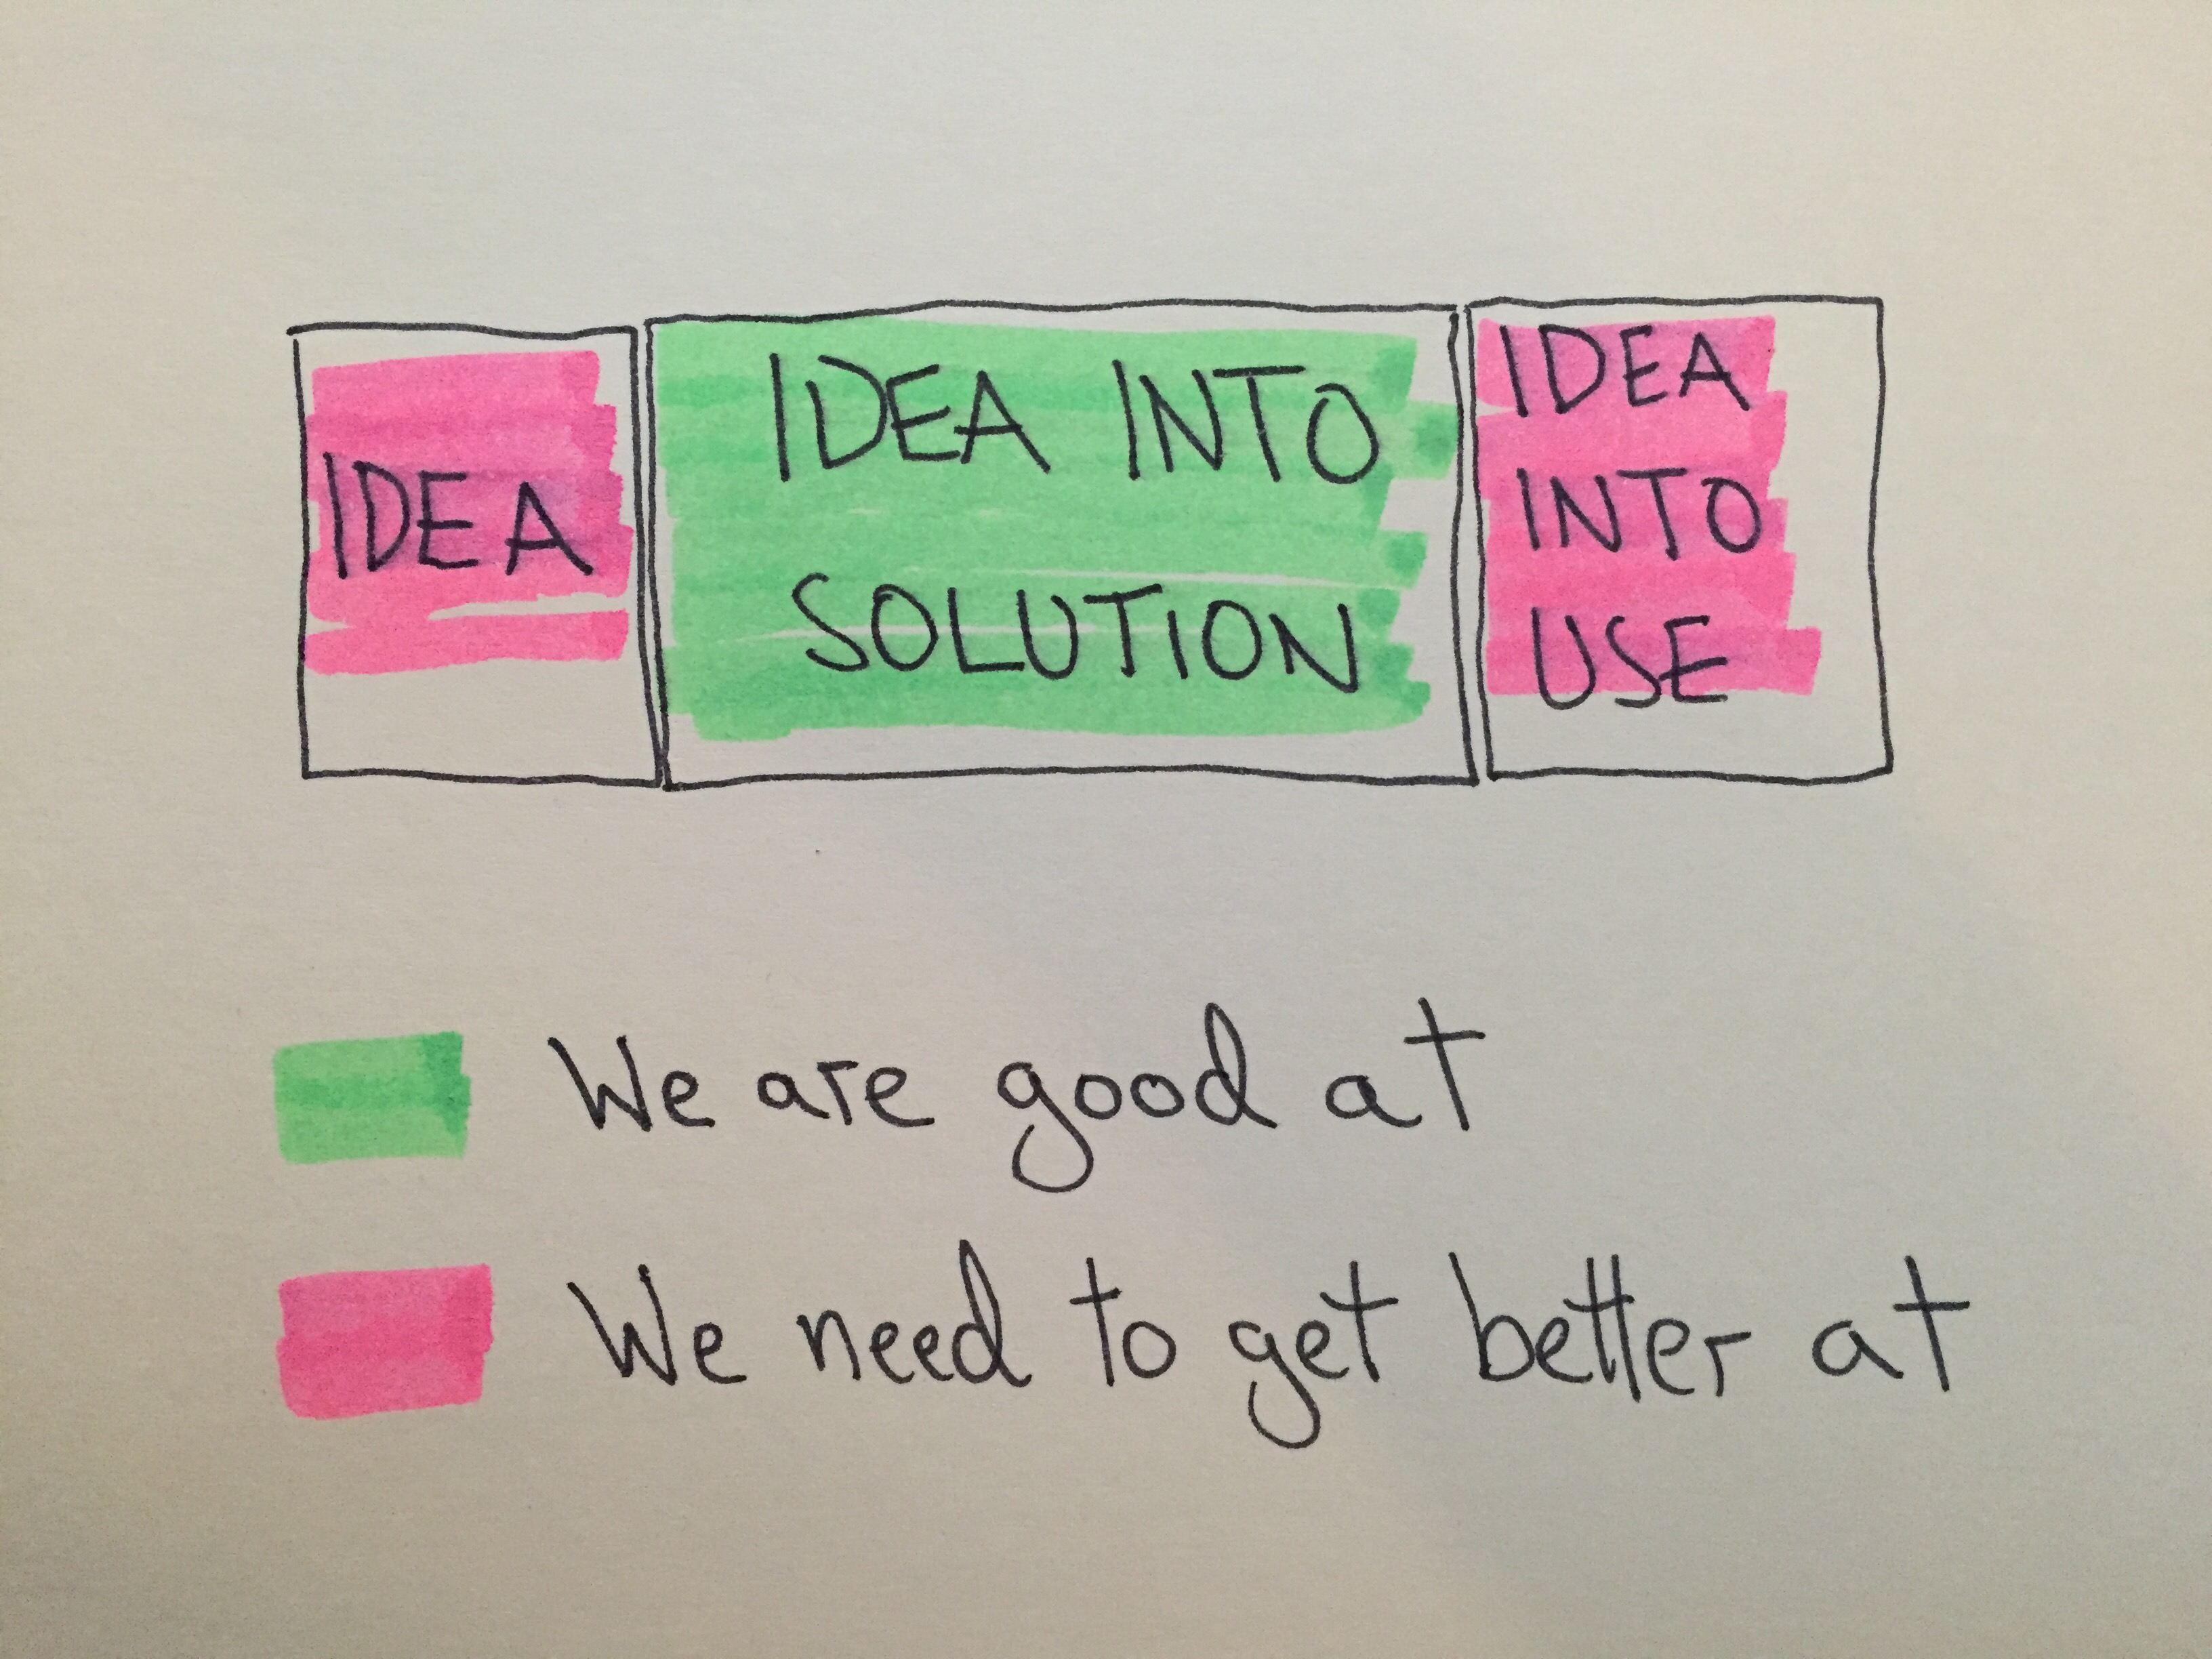 IDEA
IDEA INTO
SOLUTION
IDEA
INTO
USE
We are good at
We need to get better at